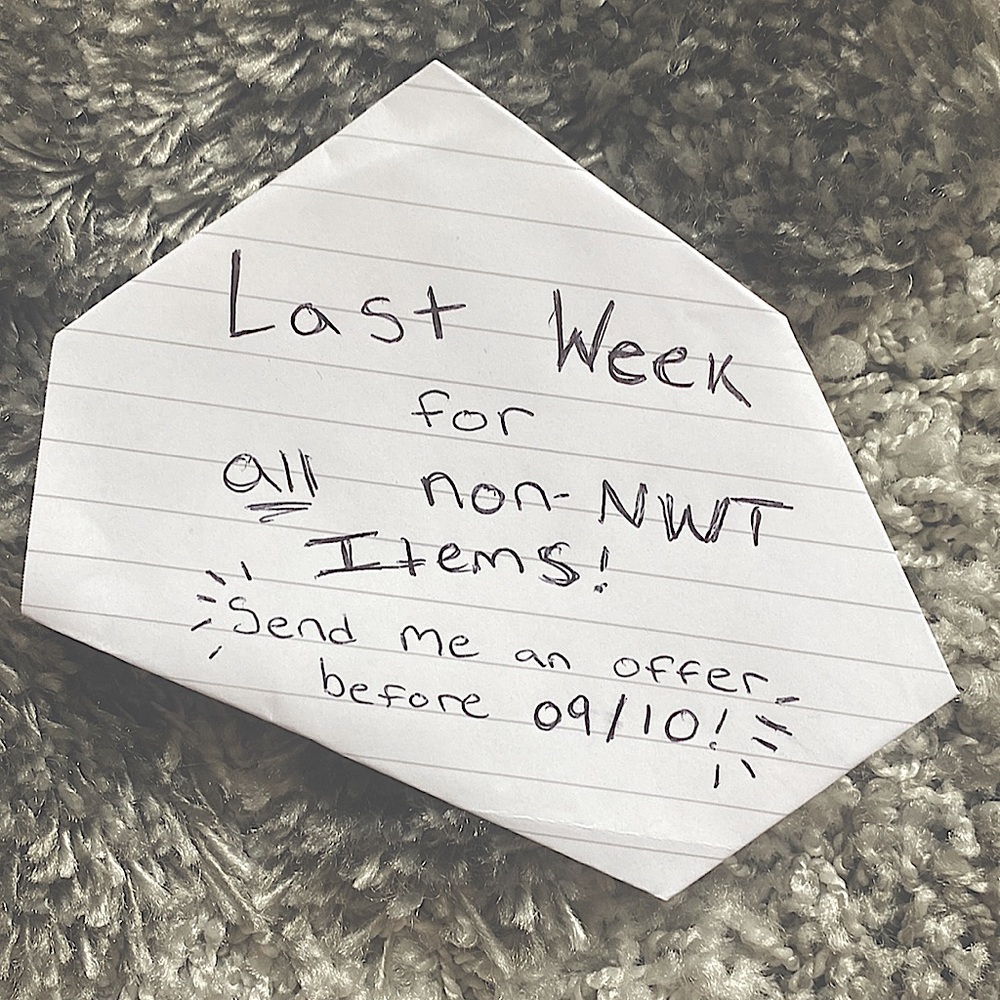 Last Week
for
all non-NWT
Items!
Send me an offer
before 09/10!